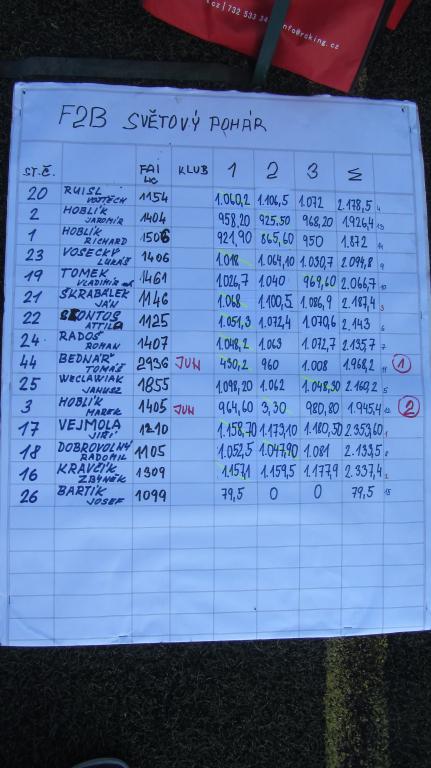 .cz | 732 533 34 info@rcking.cz
F2B SVĚTOVÝ POHÁR
ST.Č. FAI LIC KLUB 1 2 3 Σ
20 RUISL VOJTĚCH 1154 1.060,2 1.106,5 1.072 2.178,5 4
2 HOBLÍK JAROMÍR 1404 958,20 925,50 968,20 1.926,4 13
1 HOBLÍK RICHARD 1506 921,90 865,60 950 1.872 14
23 VOSECKÝ LUKÁŠ 1406 1.018 1.064,10 1.030,7 2.094,8 9
19 TOMEK VLADIMÍR 1461 1.026,7 1.040 969,60 2.066,7 10
21 ŠKRABÁLEK JÁN 1146 1.068 1.100,5 1.086,9 2.187,4 3
22 SZONTOS ATTILA 1125 1.051,3 1.072,4 1.070,6 2.143 6
24 RADOŠ ROMAN 1407 1.048,2 1.063 1.072,7 2.135,7 7
44 BEDNÁŘ TOMÁŠ 2936 JUN 430,2 960 1.008 1.968,2 11 1
25 WECLAWIAK JANUSZ 1855 1.098,20 1.062 1.048,30 2.160,2 5
3 HOBLÍK MAREK 1405 JUN 964,60 3,30 980,80 1.945,4 12 2
17 VEJMOLA JIŘÍ 1210 1.158,70 1.173,10 1.180,50 2.353,60 1
18 DOBROVOLNÝ RADOMIL 1105 1.052,5 1.047,90 1.081 2.133,5 8
16 KRAVČÍK ZBYNĚK 1309 1.157,1 1.159,5 1.177,9 2.337,4 2
26 BARTÍK JOSEF 1099 79,5 0 0 79,5 15